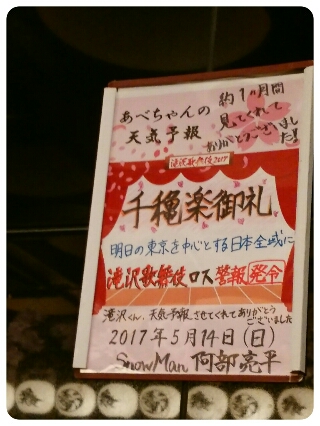 あべちゃんの
天気予報
約1ヶ月間
見てくれて
ありがとうございました!
滝沢歌舞伎2017
千穐楽御礼
明日の東京を中心とする日本全域に
滝沢歌舞伎ロス警報発令
滝沢くん、天気予報させてくれてありがとう
ございました
2017年5月14日(日)
SnowMan 阿部亮平